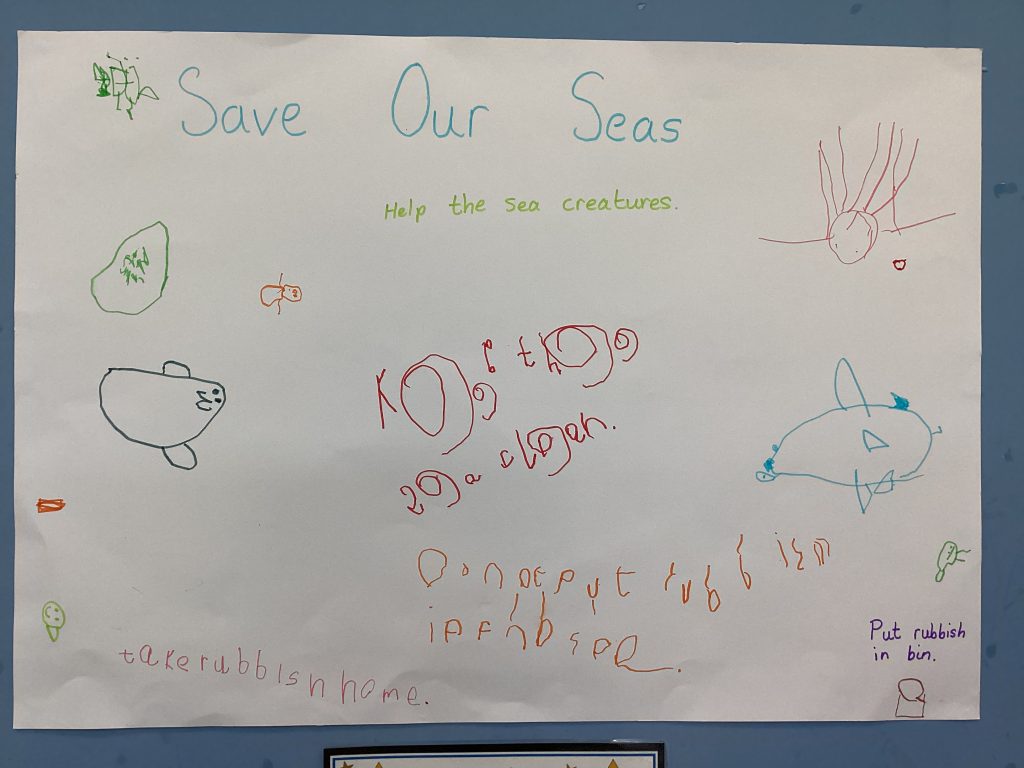 Save Our Seas
Help the sea creatures.
Keep the
sea clean.
Do not put rubbish
in the sea.
Put rubbish
in bin.
take rubbish home.